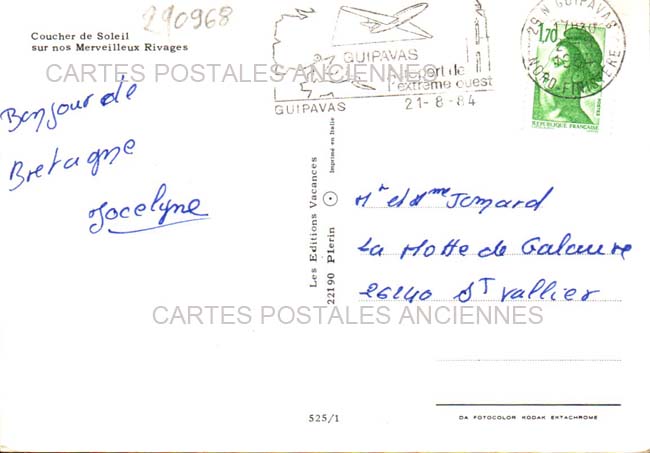 290968
Coucher de Soleil
sur nos Merveilleux Rivages
CARTES POSTALES ANCIENNES
GUIPAVAS
port de
l'extrême ouest
GUIPAVAS
21-8-84
29 N GUIPAVAS
17H30
NORD-FINISTERE
1,70
REPUBLIQUE FRANÇAISE
Bonjour de
Bretagne
Jocelyne
Les Editions Vacances
22190 Plerin
Imprimé en Italie
Mr et Mme Jomard
La Motte de Galaure
26240 St Vallier
CARTES POSTALES ANCIENNES
525/1
DA FOTOCOLOR KODAK EKTACHROME